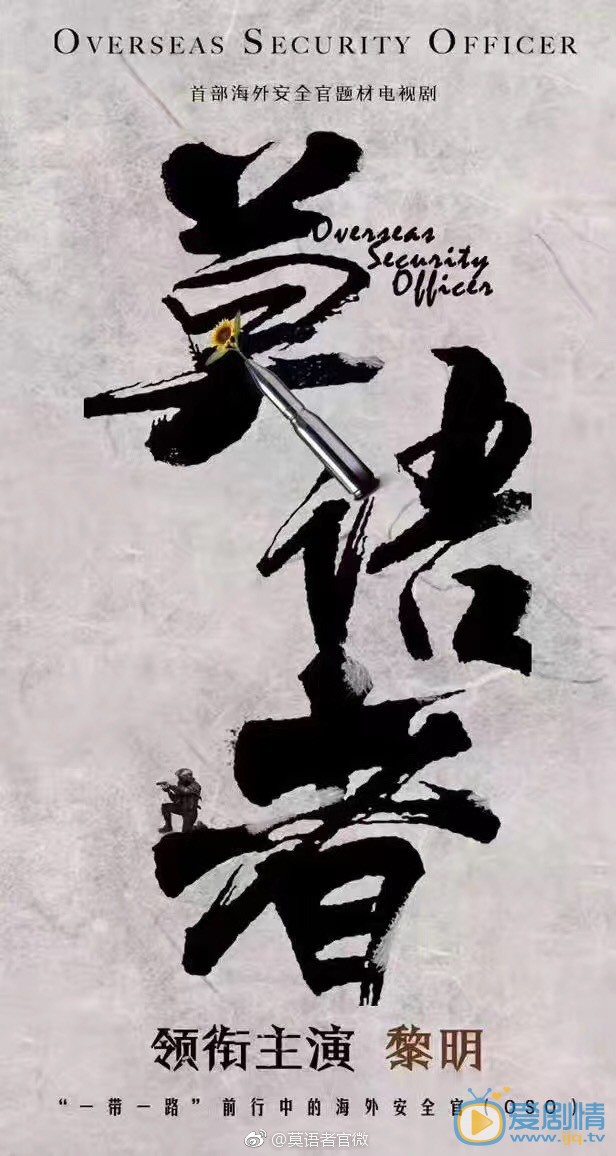 OVERSEAS SECURITY OFFICER
首部海外安全官题材电视剧
莫语者
Overseas
Security
Officer
领衔主演 黎明
“一带一路”前行中的海外安全官（OSO）
@莫语者官微
爱剧情
www.ijq.tv